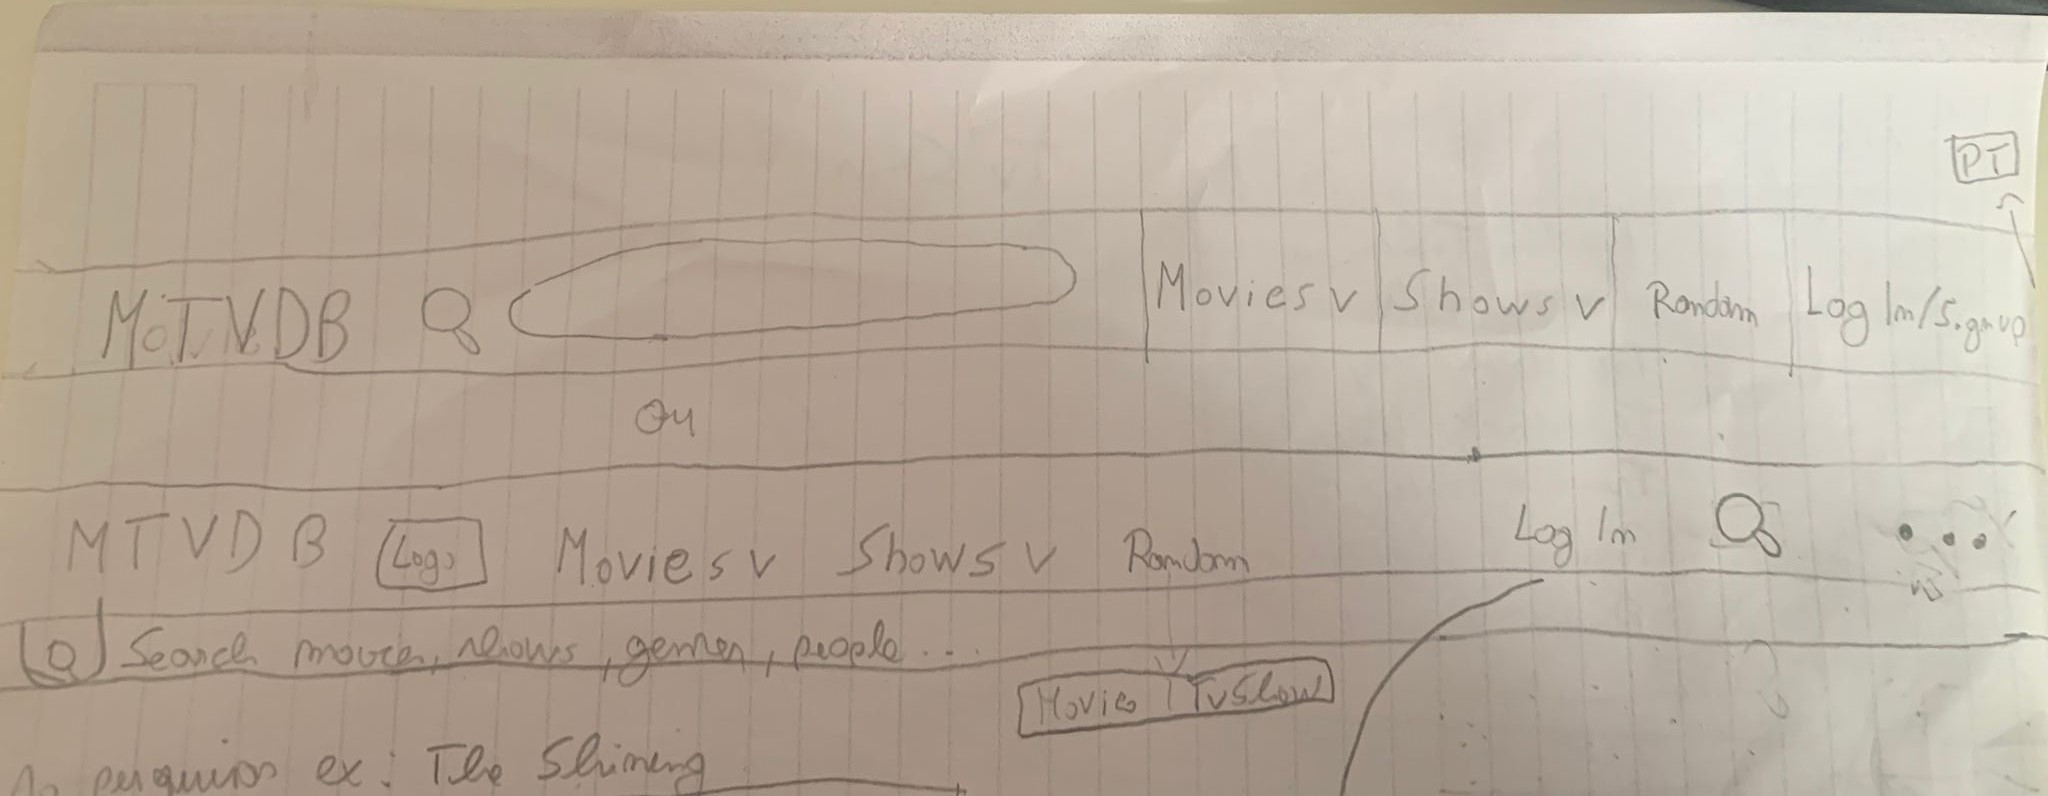 PT
MoTVDB Movies v Shows v Random Log In/Signup
Ou
MTVDB Logo Movies v Shows v Random Log In ...
Search movies, shows, genres, people ...
Movies TvShow
Ao pesquisar ex: The Shining